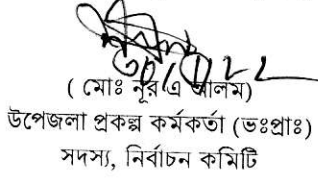 ৩০/৫/২২
( মোঃ নূর এ আলম)
উপেজলা প্রকল্প কর্মকর্তা (ভঃপ্রাঃ)
সদস্য, নির্বাচন কমিটি